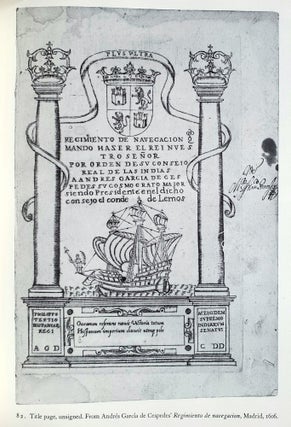 PLVS VLTRA
REGIMIENTO DE NAVEGACION Q̃
MANDO HAZER EL REI NVES
TRO SEÑOR
POR ORDEN DE SV CONSEIO
REAL DE LAS INDIAS
A ANDRES GARCIA DE CES
PEDES SV COSMOGRAFO MAJOR
siendo Presidente en el dicho
consejo el conde de Lemos
PHILIPPO
TERTIO
HISPANIARVM
REGI
Oceanum reserans navis Victoria totum
Hispanum imperium clausit utroque polo
SVPREMO
INDIARVM
SENATVS
A D G
C DD
82. Title page, unsigned. From Andrés García de Cespedes' Regimiento de navegacion, Madrid, 1606.